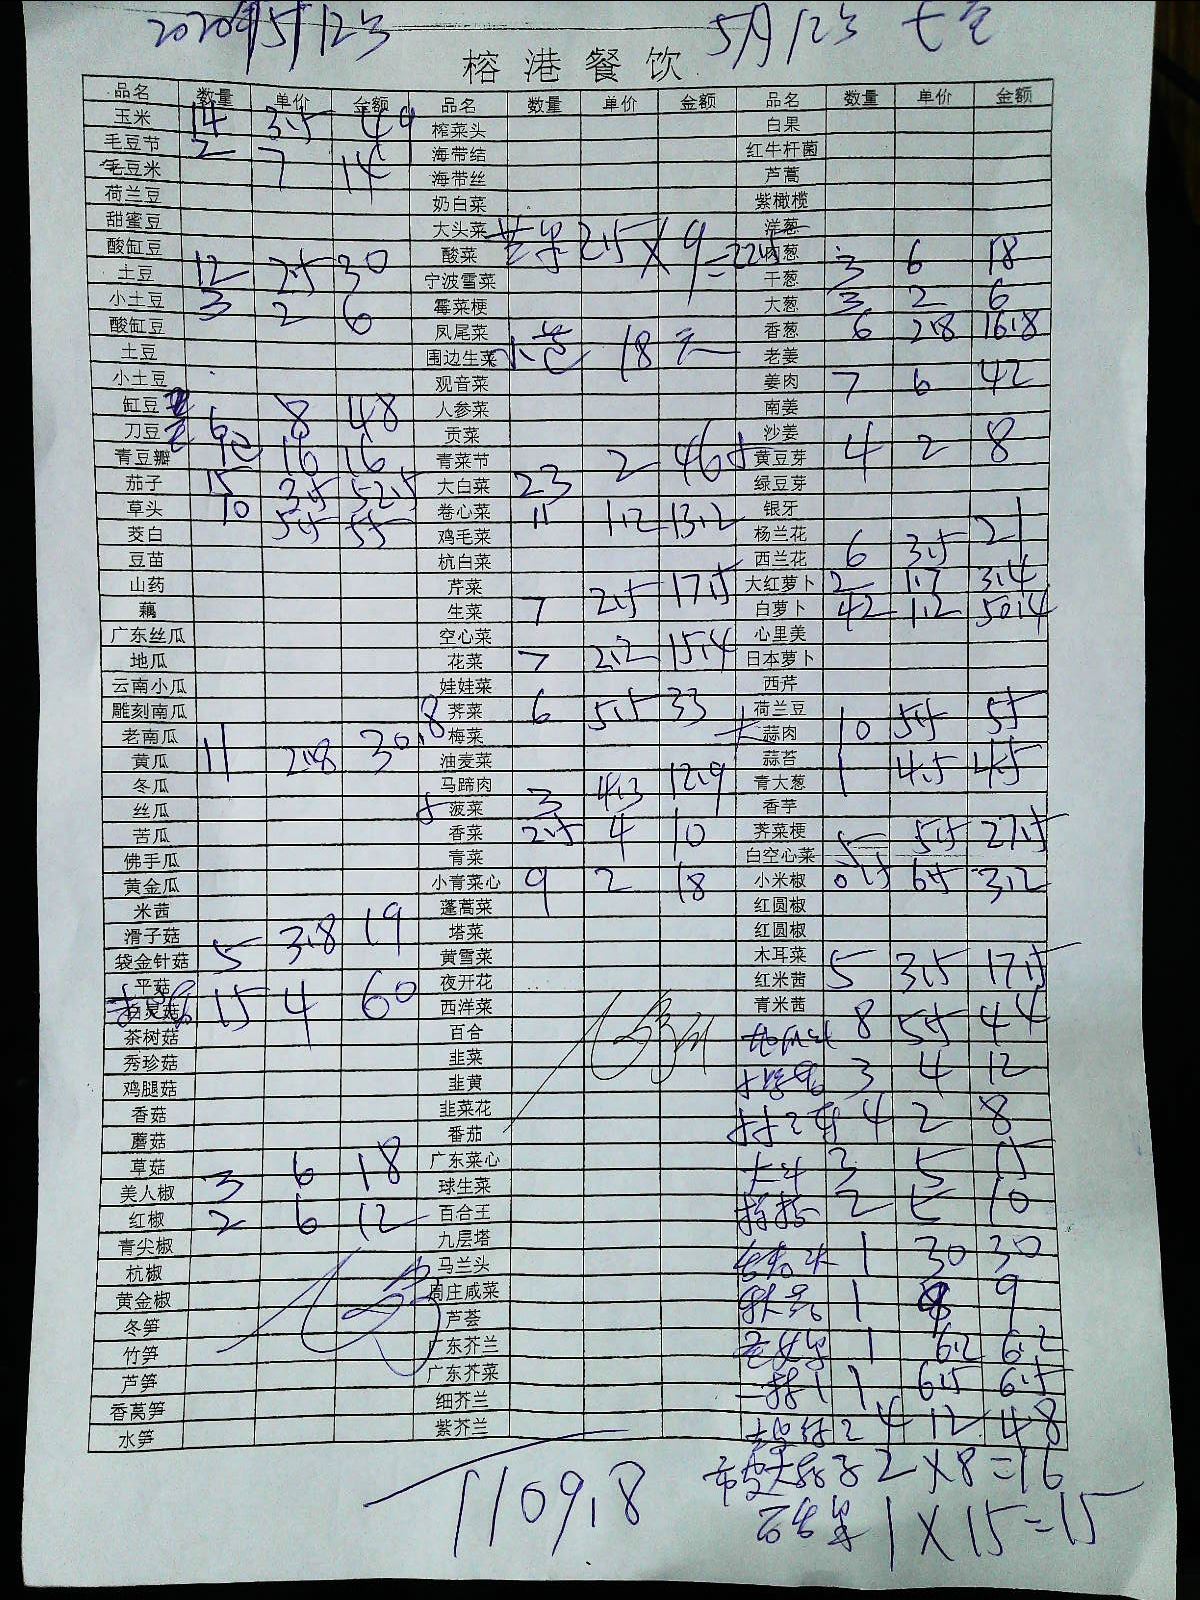 2020年5月12号 5月12号
榕港餐饮
品名 数量 单价 金额 品名 数量 单价 金额 品名 数量 单价 金额
玉米 14 3.5 49 榨菜头 白果
毛豆节 2 7 14 海带结 红牛杆菌
毛豆米 海带丝 芦蒿
荷兰豆 奶白菜 紫橄榄
甜蜜豆 大头菜 洋葱
酸缸豆 酸菜 2.5 X 9 = 22.5 肉葱 3 6 18
土豆 12 2.5 30 宁波雪菜 干葱
小土豆 3 2 6 霉菜梗 大葱 3 2 6
酸缸豆 凤尾菜 香葱 6 2.8 16.8
土豆 围边生菜 18 老姜
小土豆 观音菜 姜肉 7 6 42
缸豆 6 8 48 人参菜 南姜
刀豆 贡菜 沙姜
青豆瓣 16 16 青菜节 2 46 黄豆芽 4 2 8
茄子 15 3.5 52.5 大白菜 23 绿豆芽
草头 10 5.5 55 卷心菜 11 1.2 13.2 银牙
茭白 鸡毛菜 杨兰花
豆苗 杭白菜 西兰花 6 3.5 21
山药 芹菜 大红萝卜 2 1.7 3.4
藕 生菜 7 2.5 17.5 白萝卜 42 1.2 50.4
广东丝瓜 空心菜 心里美
地瓜 花菜 7 2.2 15.4 日本萝卜
云南小瓜 娃娃菜 西芹
雕刻南瓜 荠菜 6 5.5 33 荷兰豆
老南瓜 梅菜 蒜肉 10 5.5 55
黄瓜 11 2.8 30.8 油麦菜 蒜苔
冬瓜 马蹄肉 青大葱 1 4.5 4.5
丝瓜 菠菜 3 4.3 12.9 香芋
苦瓜 香菜 2.5 4 10 荠菜梗
佛手瓜 青菜 白空心菜 5 5.5 27.5
黄金瓜 小青菜心 9 2 18 小米椒 0.5 6.5 3.2
米茜 蓬蒿菜 红圆椒
滑子菇 塔菜 红圆椒
袋金针菇 5 3.8 19 黄雪菜 木耳菜
平菇 夜开花 红米茜 5 3.5 17.5
白灵菇 15 4 60 西洋菜 青米茜
茶树菇 百合 8 5.5 44
秀珍菇 韭菜 3 4 12
鸡腿菇 韭黄 4 2 8
香菇 韭菜花
蘑菇 番茄
草菇 广东菜心 3 5 15
美人椒 3 6 18 球生菜 2 5 10
红椒 2 6 12 百合王
青尖椒 九层塔 1 30 30
杭椒 马兰头 1 9 9
黄金椒 周庄咸菜
冬笋 芦荟
竹笋 广东芥兰 1 6.2 6.2
芦笋 广东芥菜 1 6.5 6.5
香莴笋 细芥兰
水笋 紫芥兰 4 12 48
2 X 8 = 16
1109.8 1 X 15 = 15